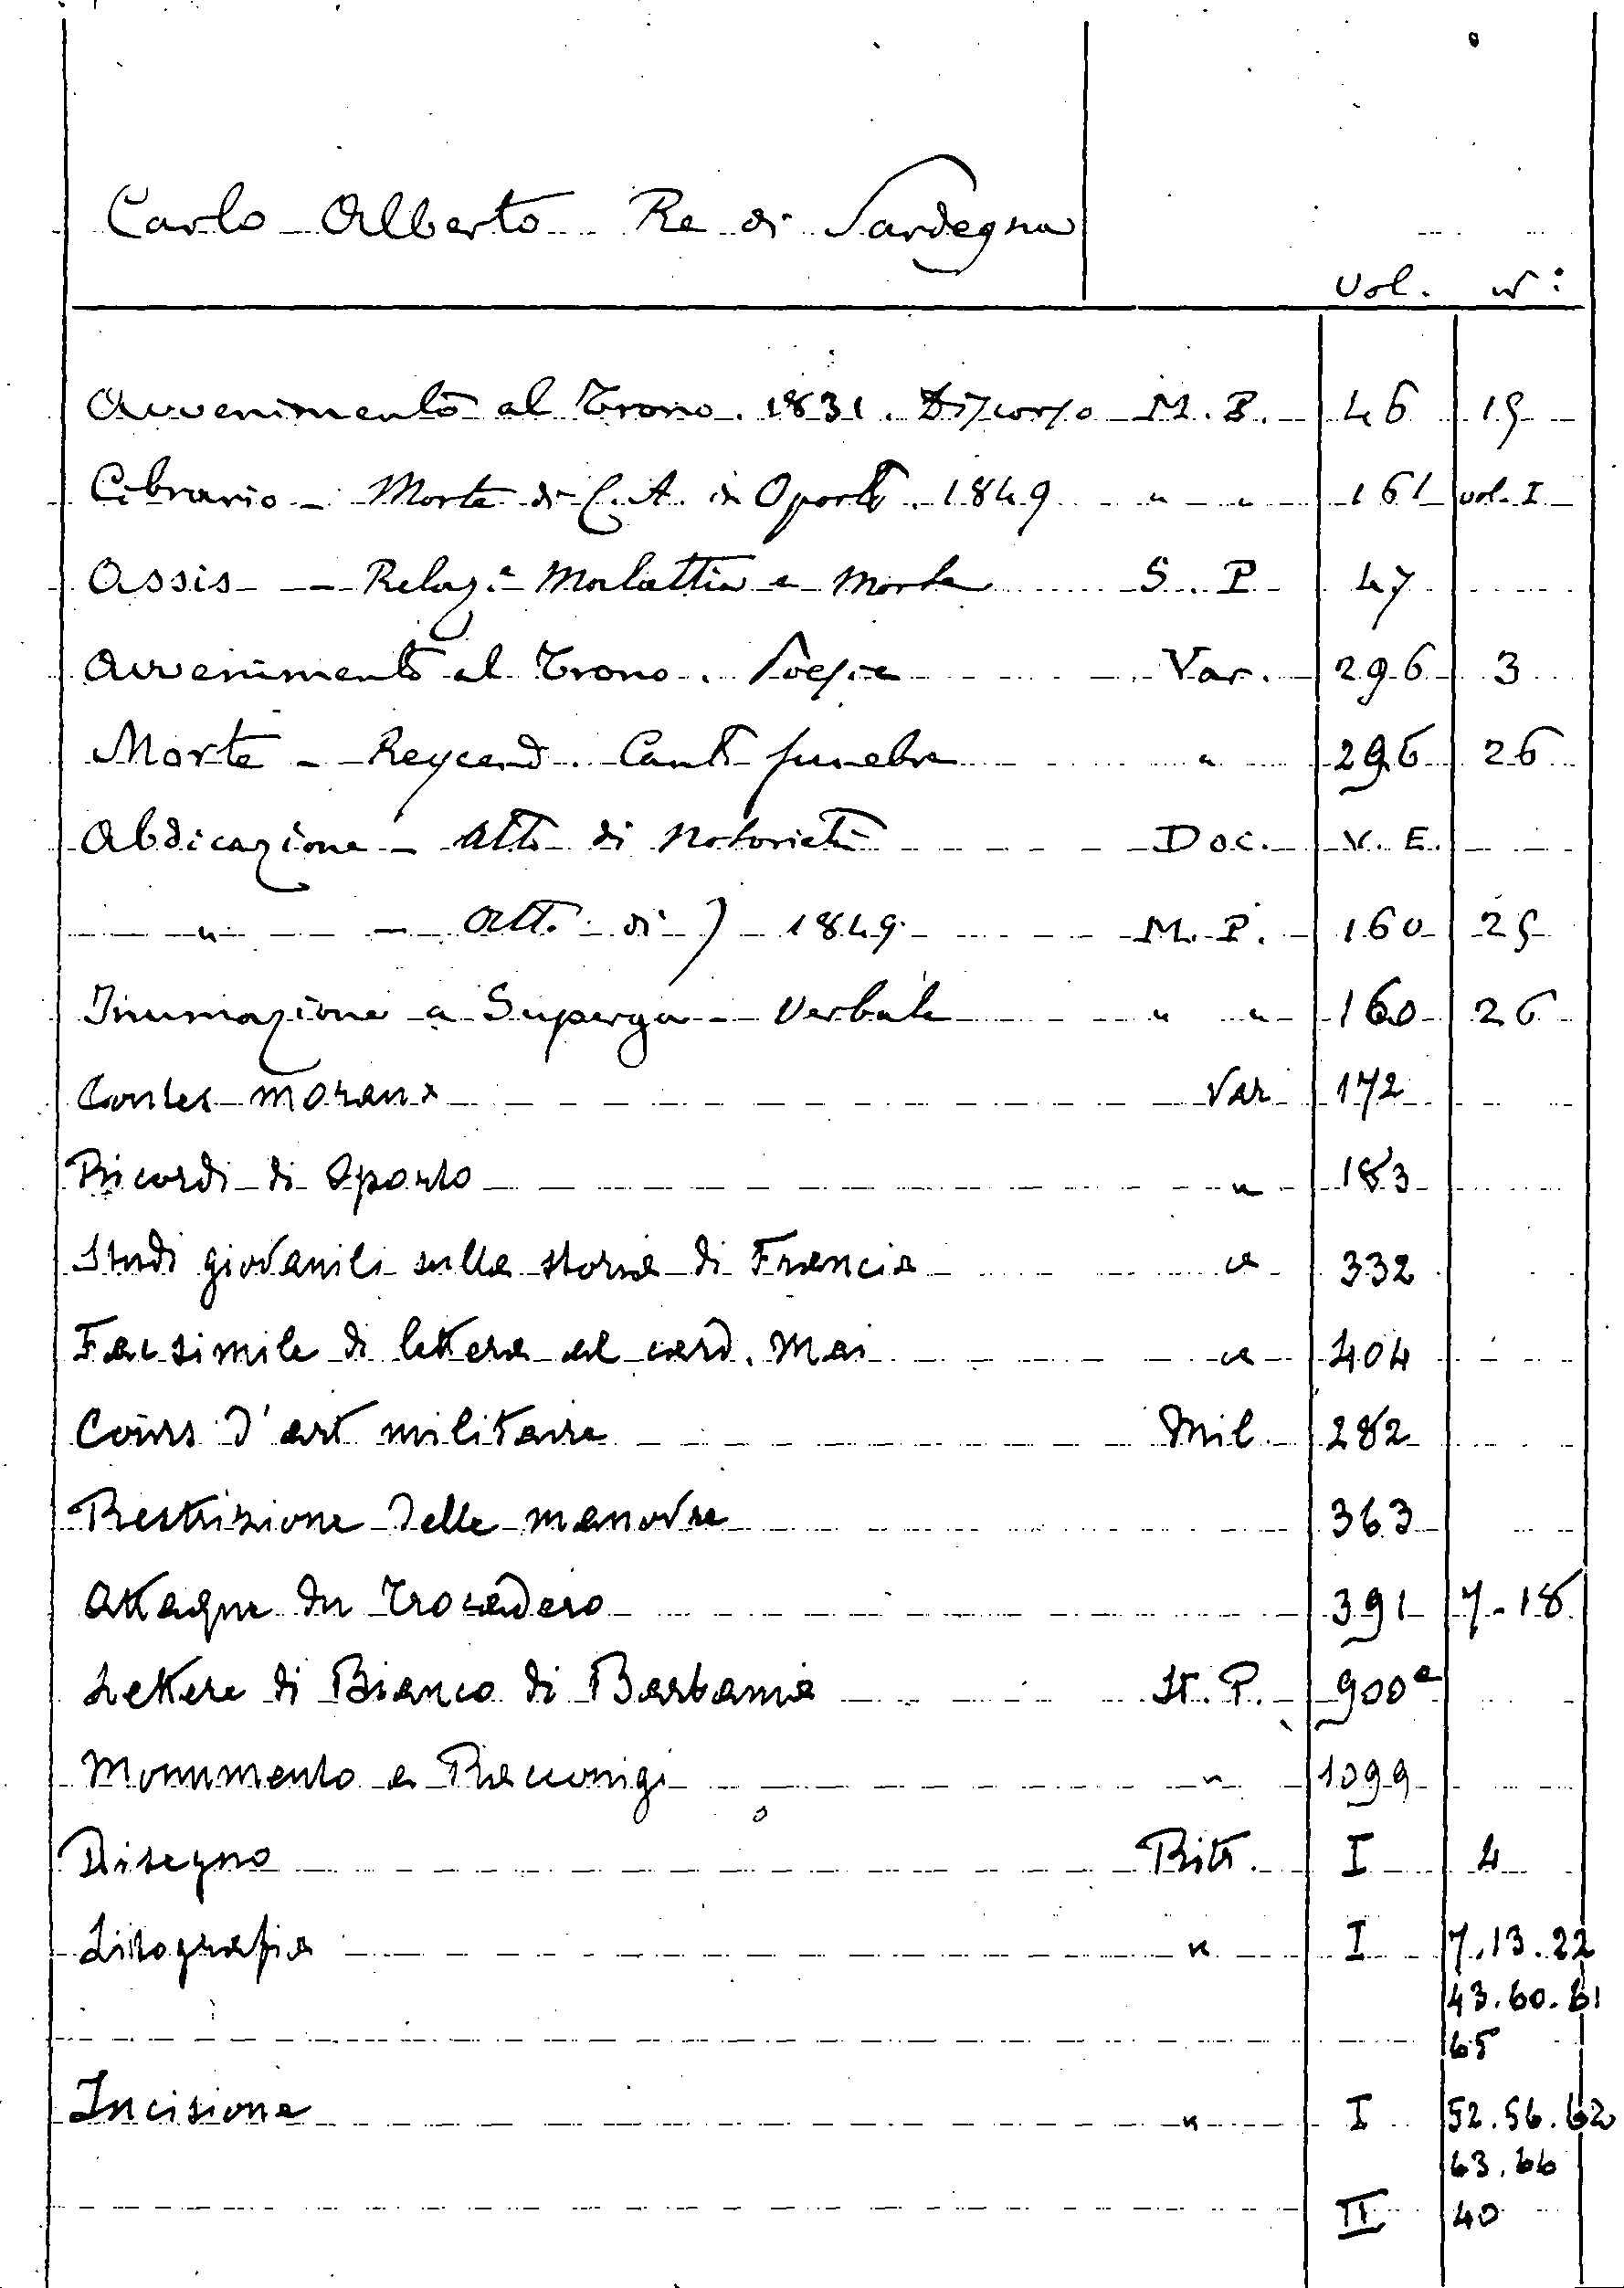 Carlo Alberto Re di Sardegna
Vol. N°:
Avvenimento al Trono. 1831. Discorso M.B. 46 19
Cibrario - Morte di C.A. in Oporto. 1849 " " 161 vol. I
Assis - Relaz.e Malattia e Morte S.P. 47
Avvenimento al Trono. Poesia Var. 296 3
Morte - Reycend. Canto funebre " 296 26
Abdicazione - Atto di Notorietà Doc. V.E.
" - Atto di 1849 M.P. 160 25
Inumazione a Superga - Verbale " " 160 26
Contes moraux Var 172
Ricordi di Oporto " 183
Studi giovanili sulla storia di Francia " 332
Facsimile di lettera al card. Mai " 404
Cours d'art militaire Mil. 282
Restrizione delle manovre 363
Attaque du Trocadero 391 7-18
Lettere di Bianco di Barbania St. P. 900a
Monumento a Racconigi " 1099
Disegno Ritr. I 4
Litografia " I 7.13.22
43.60.61
65
Incisione " I 52.56.62
63.66
II 40